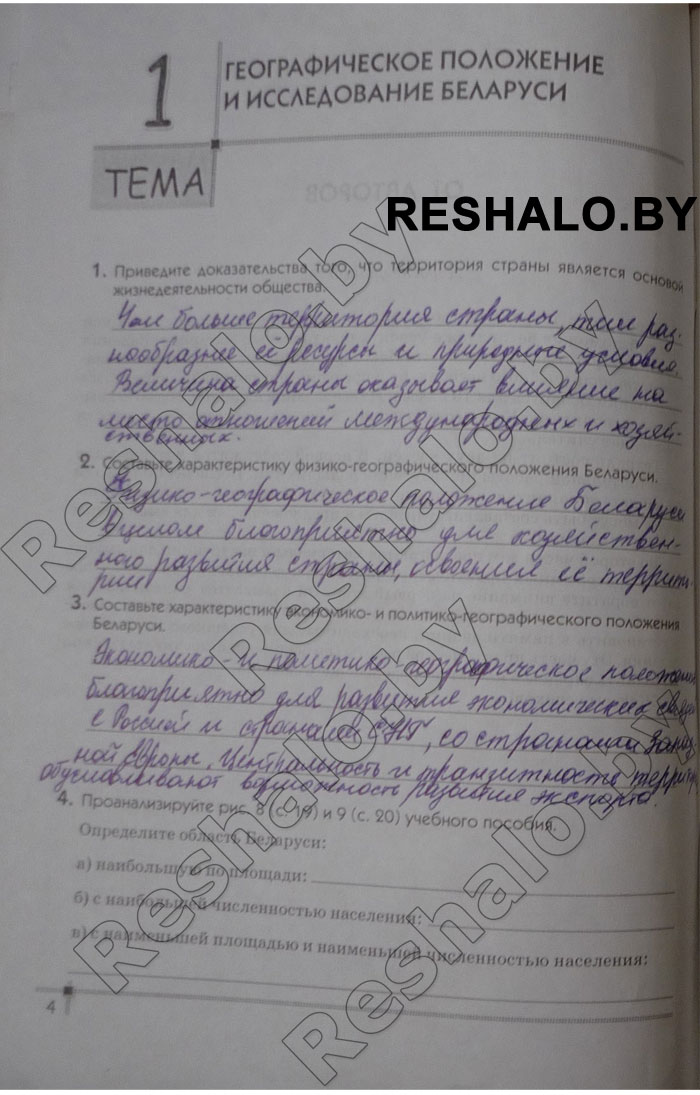 1
ГЕОГРАФИЧЕСКОЕ ПОЛОЖЕНИЕ
И ИССЛЕДОВАНИЕ БЕЛАРУСИ
ТЕМА
RESHALO.BY
1. Приведите доказательства того, что территория страны является основой
жизнедеятельности общества.
Чем больше территория страны, тем раз-
нообразнее её ресурсы и природные условия.
Величина страны оказывает влияние на
место отношений международных и хозяй-
ственных.
2. Составьте характеристику физико-географического положения Беларуси.
Физико-географическое положение Беларуси
в целом благоприятно для хозяйствен-
ного развития страны, освоения её террито-
рии
3. Составьте характеристику экономико- и политико-географического положения
Беларуси.
Экономико- и политико-географическое положение
благоприятно для развития экономических связей
с Россией и странами СНГ, со странами Запад-
ной Европы. Центральность и транзитность
обуславливают возможность развития экспорта.
4. Проанализируйте рис. 8 (с. 19) и 9 (с. 20) учебного пособия.
Определите область Беларуси:
а) наибольшую по площади:
б) с наибольшей численностью населения:
в) с наименьшей площадью и наименьшей численностью населения:
4
Reshalo.by
Reshalo.by
Reshalo.by
Reshalo.by